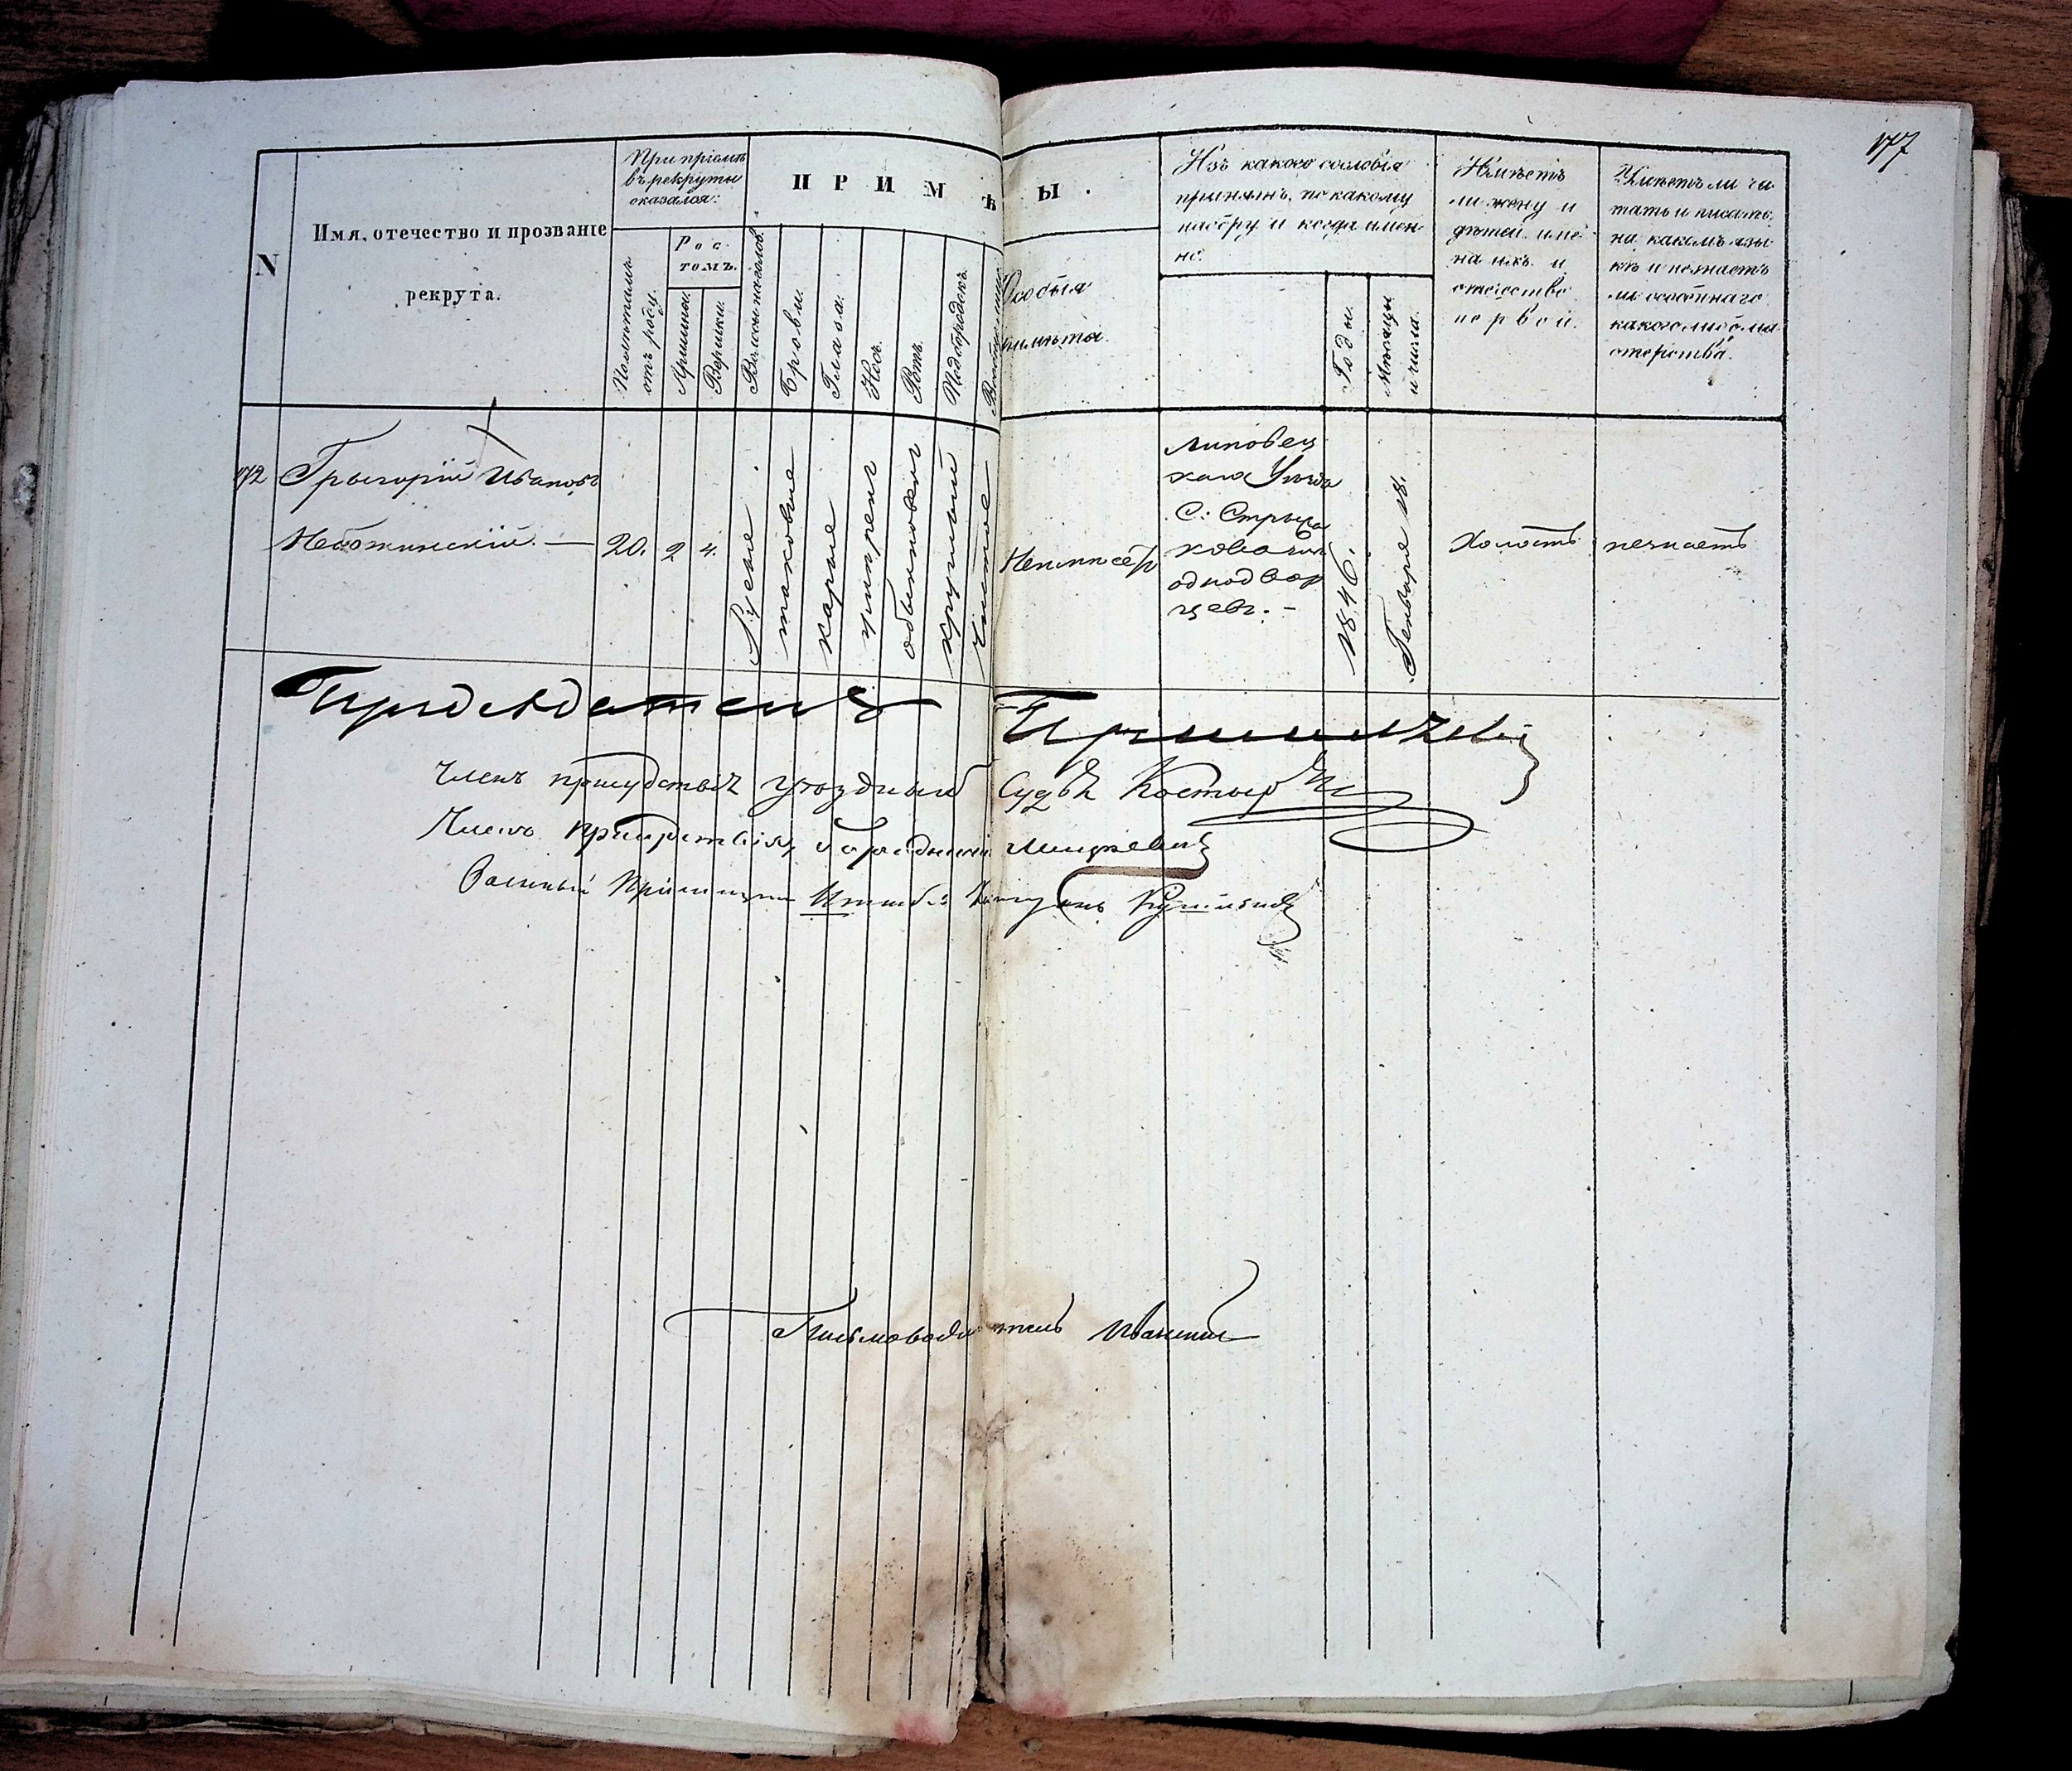 177
N
Имя, отечество и прозваніе
рекрута.
При пріемѣ
въ рекруты
оказался:
Полнымъ
отъ роду.
Рос-
томъ.
Аршины.
Вершки.
ПРИМѢТЫ.
Волосы на голов.
Брови.
Глаза.
Носъ.
Ротъ.
Подбородокъ.
Особыя
примѣты.
Изъ какого сословія
принятъ, по какому
набору и когда имен-
но.
Годы.
Мѣсяцы
и числа.
Имѣетъ
ли жену и
дѣтей име-
на ихъ и
отечество
первой.
Умѣетъ ли чи-
тать и писать,
на какомъ язы-
кѣ и незнаетъ
ли особеннаго
какого либо ма-
стерства.
172
Грыгорій Ивановъ
Небожинскій. —
20.
2
4.
Русые
таковые
карые
умѣрен
обыкновен
круглый
чистое
Липовец
каго Уѣзда
С:
однодвор
цевъ. -
1846.
Генваря 18.
Холостъ
незнаетъ
Предсѣдатель
Членъ присудствія уѣздный Судья
Членъ присудствія Городничій
Военный Пріемщикъ Штабсъ Капитанъ
Письмоводитель